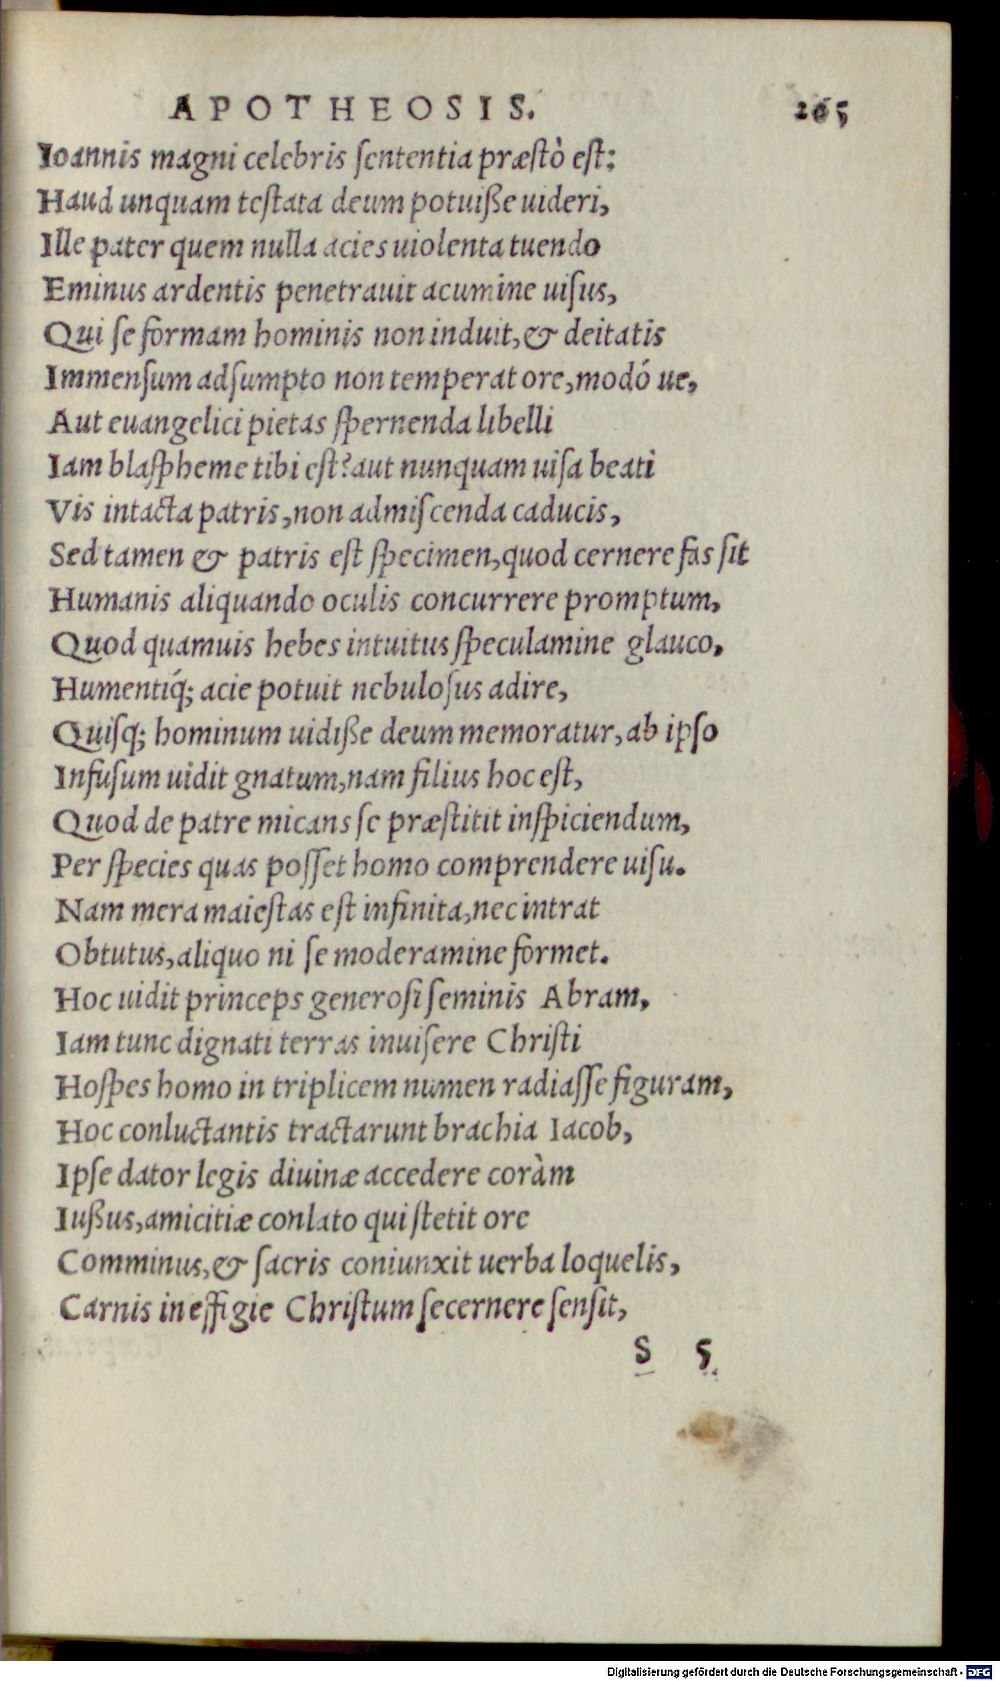 APOTHEOSIS. 265
Ioannis magni celebris ſententia præſtò eſt:
Haud unquam teſtata deum potuiße uideri,
Ille pater quem nulla acies uiolenta tuendo
Eminus ardentis penetrauit acumine uiſus,
Qui ſe formam hominis non induit, & deitatis
Immenſum adſumpto non temperat ore, modó ue,
Aut euangelici pietas ſpernenda libelli
Iam blaſpheme tibi eſt? aut nunquam uiſa beati
Vis intacta patris, non admiſcenda caducis,
Sed tamen & patris eſt ſpecimen, quod cernere fas ſit
Humanis aliquando oculis concurrere promptum,
Quod quamuis hebes intuitus ſpeculamine glauco,
Humentiq́; acie potuit nebuloſus adire,
Quiſq; hominum uidiße deum memoratur, ab ipſo
Infuſum uidit gnatum, nam filius hoc eſt,
Quod de patre micans ſe præſtitit inſpiciendum,
Per ſpecies quas poſſet homo comprendere uiſu.
Nam mera maieſtas eſt infinita, nec intrat
Obtutus, aliquo ni ſe moderamine formet.
Hoc uidit princeps generoſi ſeminis Abram,
Iam tunc dignati terras inuiſere Chriſti
Hoſpes homo in triplicem numen radiaſſe figuram,
Hoc conluctantis tractarunt brachia Iacob,
Ipſe dator legis diuinæ accedere coràm
Iußus, amicitiæ conlato qui ſtetit ore
Comminus, & ſacris coniunxit uerba loquelis,
Carnis in effigie Chriſtum ſe cernere ſenſit,
S 5
Digitalisierung gefördert durch die Deutsche Forschungsgemeinschaft - DFG